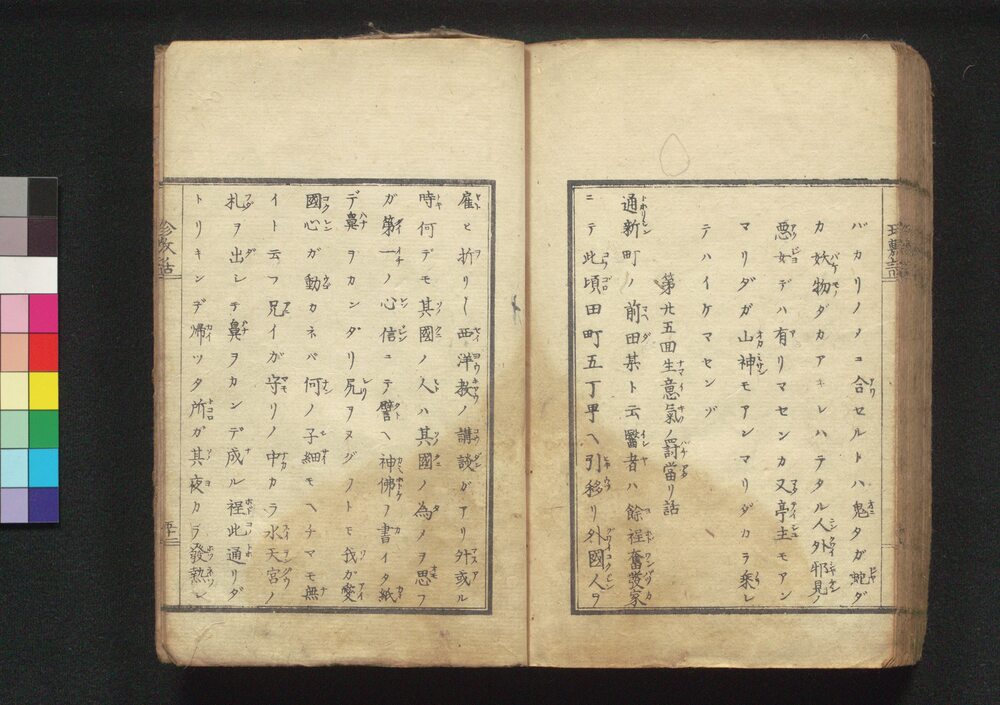 バカリノメコ合セルトハ鬼タガ蛇ダ
カ妖物ダカアキレハテタル人外邪見ノ
悪女デハ有リマセンカ又亭主モアン
マリダガ山神モアンマリダカラ乗レ
テハイケマセンゾ
第廿五回生意氣ノ罸當リ話
通新町ノ前田某ト云醫者ハ餘程奮發家
ニテ此頃田町五丁甼ヘ引移リ外國人ヲ
雇ヒ折リ〳〵西洋教ノ講談ガアリ外或ル
時何デモ其國ノ人ハ其國ノ為メヲ思フ
ガ第一ノ心信ニテ譬ヘ神佛ノ書イタ紙
デ鼻ヲカンダリ尻ヲヌグフトモ我ガ愛
國心ガ動カネバ何ノ子細モヘチマモ無
イト云フ兄イガ守リノ中カラ水天宮ノ
札ヲ出シテ鼻ヲカンデ成ル程此通リダ
トリキンデ帰ツタ所ガ其夜カラ發熱シ